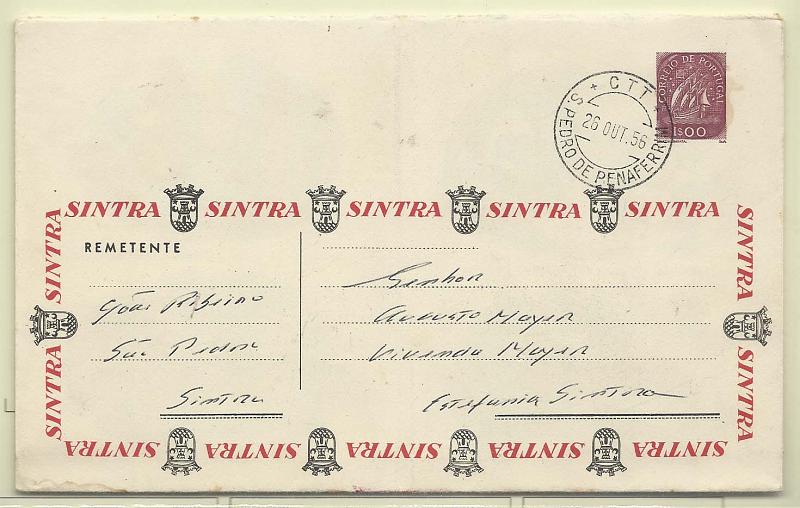 CORREIO DE PORTUGAL
1$00
CTT
26 OUT. 56
S. PEDRO DE PENAFERRIM
SINTRA SINTRA SINTRA SINTRA SINTRA
SINTRA
SINTRA
REMETENTE
João Ribeiro
São Pedro
Sintra
Senhor
Augusto Mayer
Vivenda Mayer
Estefania Sintra
SINTRA
SINTRA
SINTRA SINTRA SINTRA SINTRA SINTRA